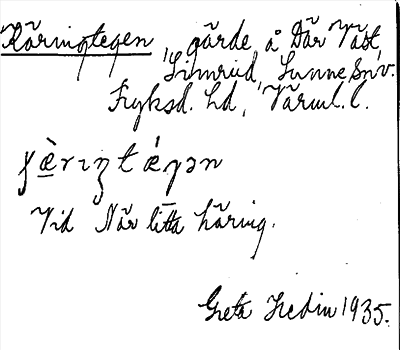 Käringtegen, gärde å Där Väst,
Simrud, Sunne Sn v.
Fryksd. Hd, Värml. l.
Vid När litta häring.
Greta Hedin 1935.